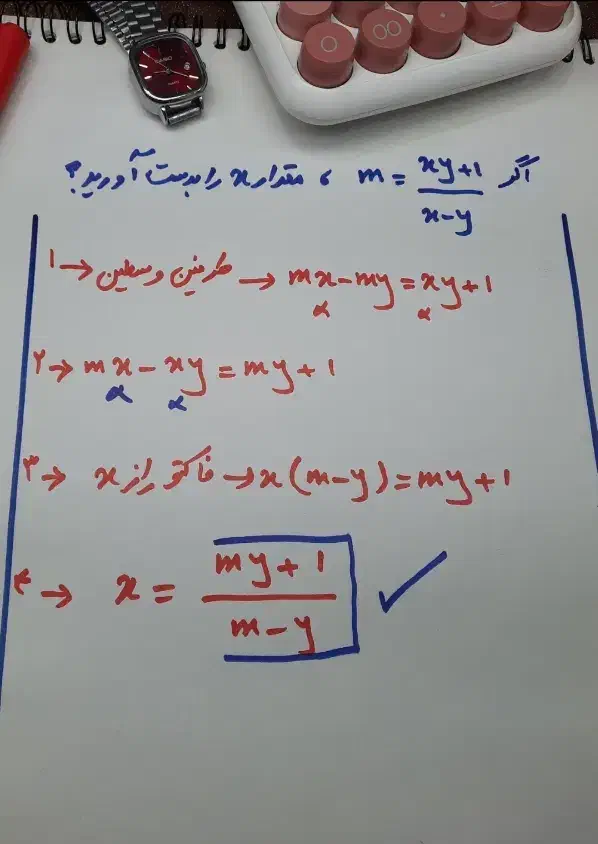 اگر m = (xy+1)/(x-y) ، مقدار x را بدست آورید؟
۱→ طرفین وسطین → mx-my=xy+1
۲→ mx-xy=my+1
۳→ فاکتور از x → x(m-y)=my+1
۴→ x = (my+1)/(m-y) ✓